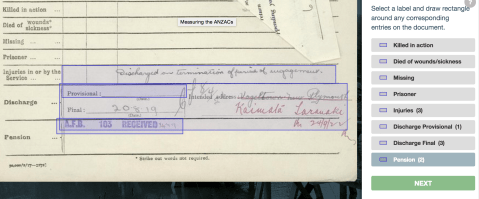 Killed in action ...
Died of wounds*
sickness*
Missing ... ...
Prisoner ... ...
Injuries in or by the
Service ... ...
Discharge ...
Pension ...
Measuring the ANZACs
Discharged on termination of period of engagement.
Provisional :
(Date)
Final : 20 8 19
(Date)
Intended address:
Plymouth
Kaimata Taranaki
B.F.B. 103 RECEIVED
* Strike out words not required.
Select a label and draw rectangle
around any corresponding
entries on the document.
Killed in action
Died of wounds/sickness
Missing
Prisoner
Injuries (3)
Discharge Provisional (1)
Discharge Final (3)
Pension (2)
NEXT